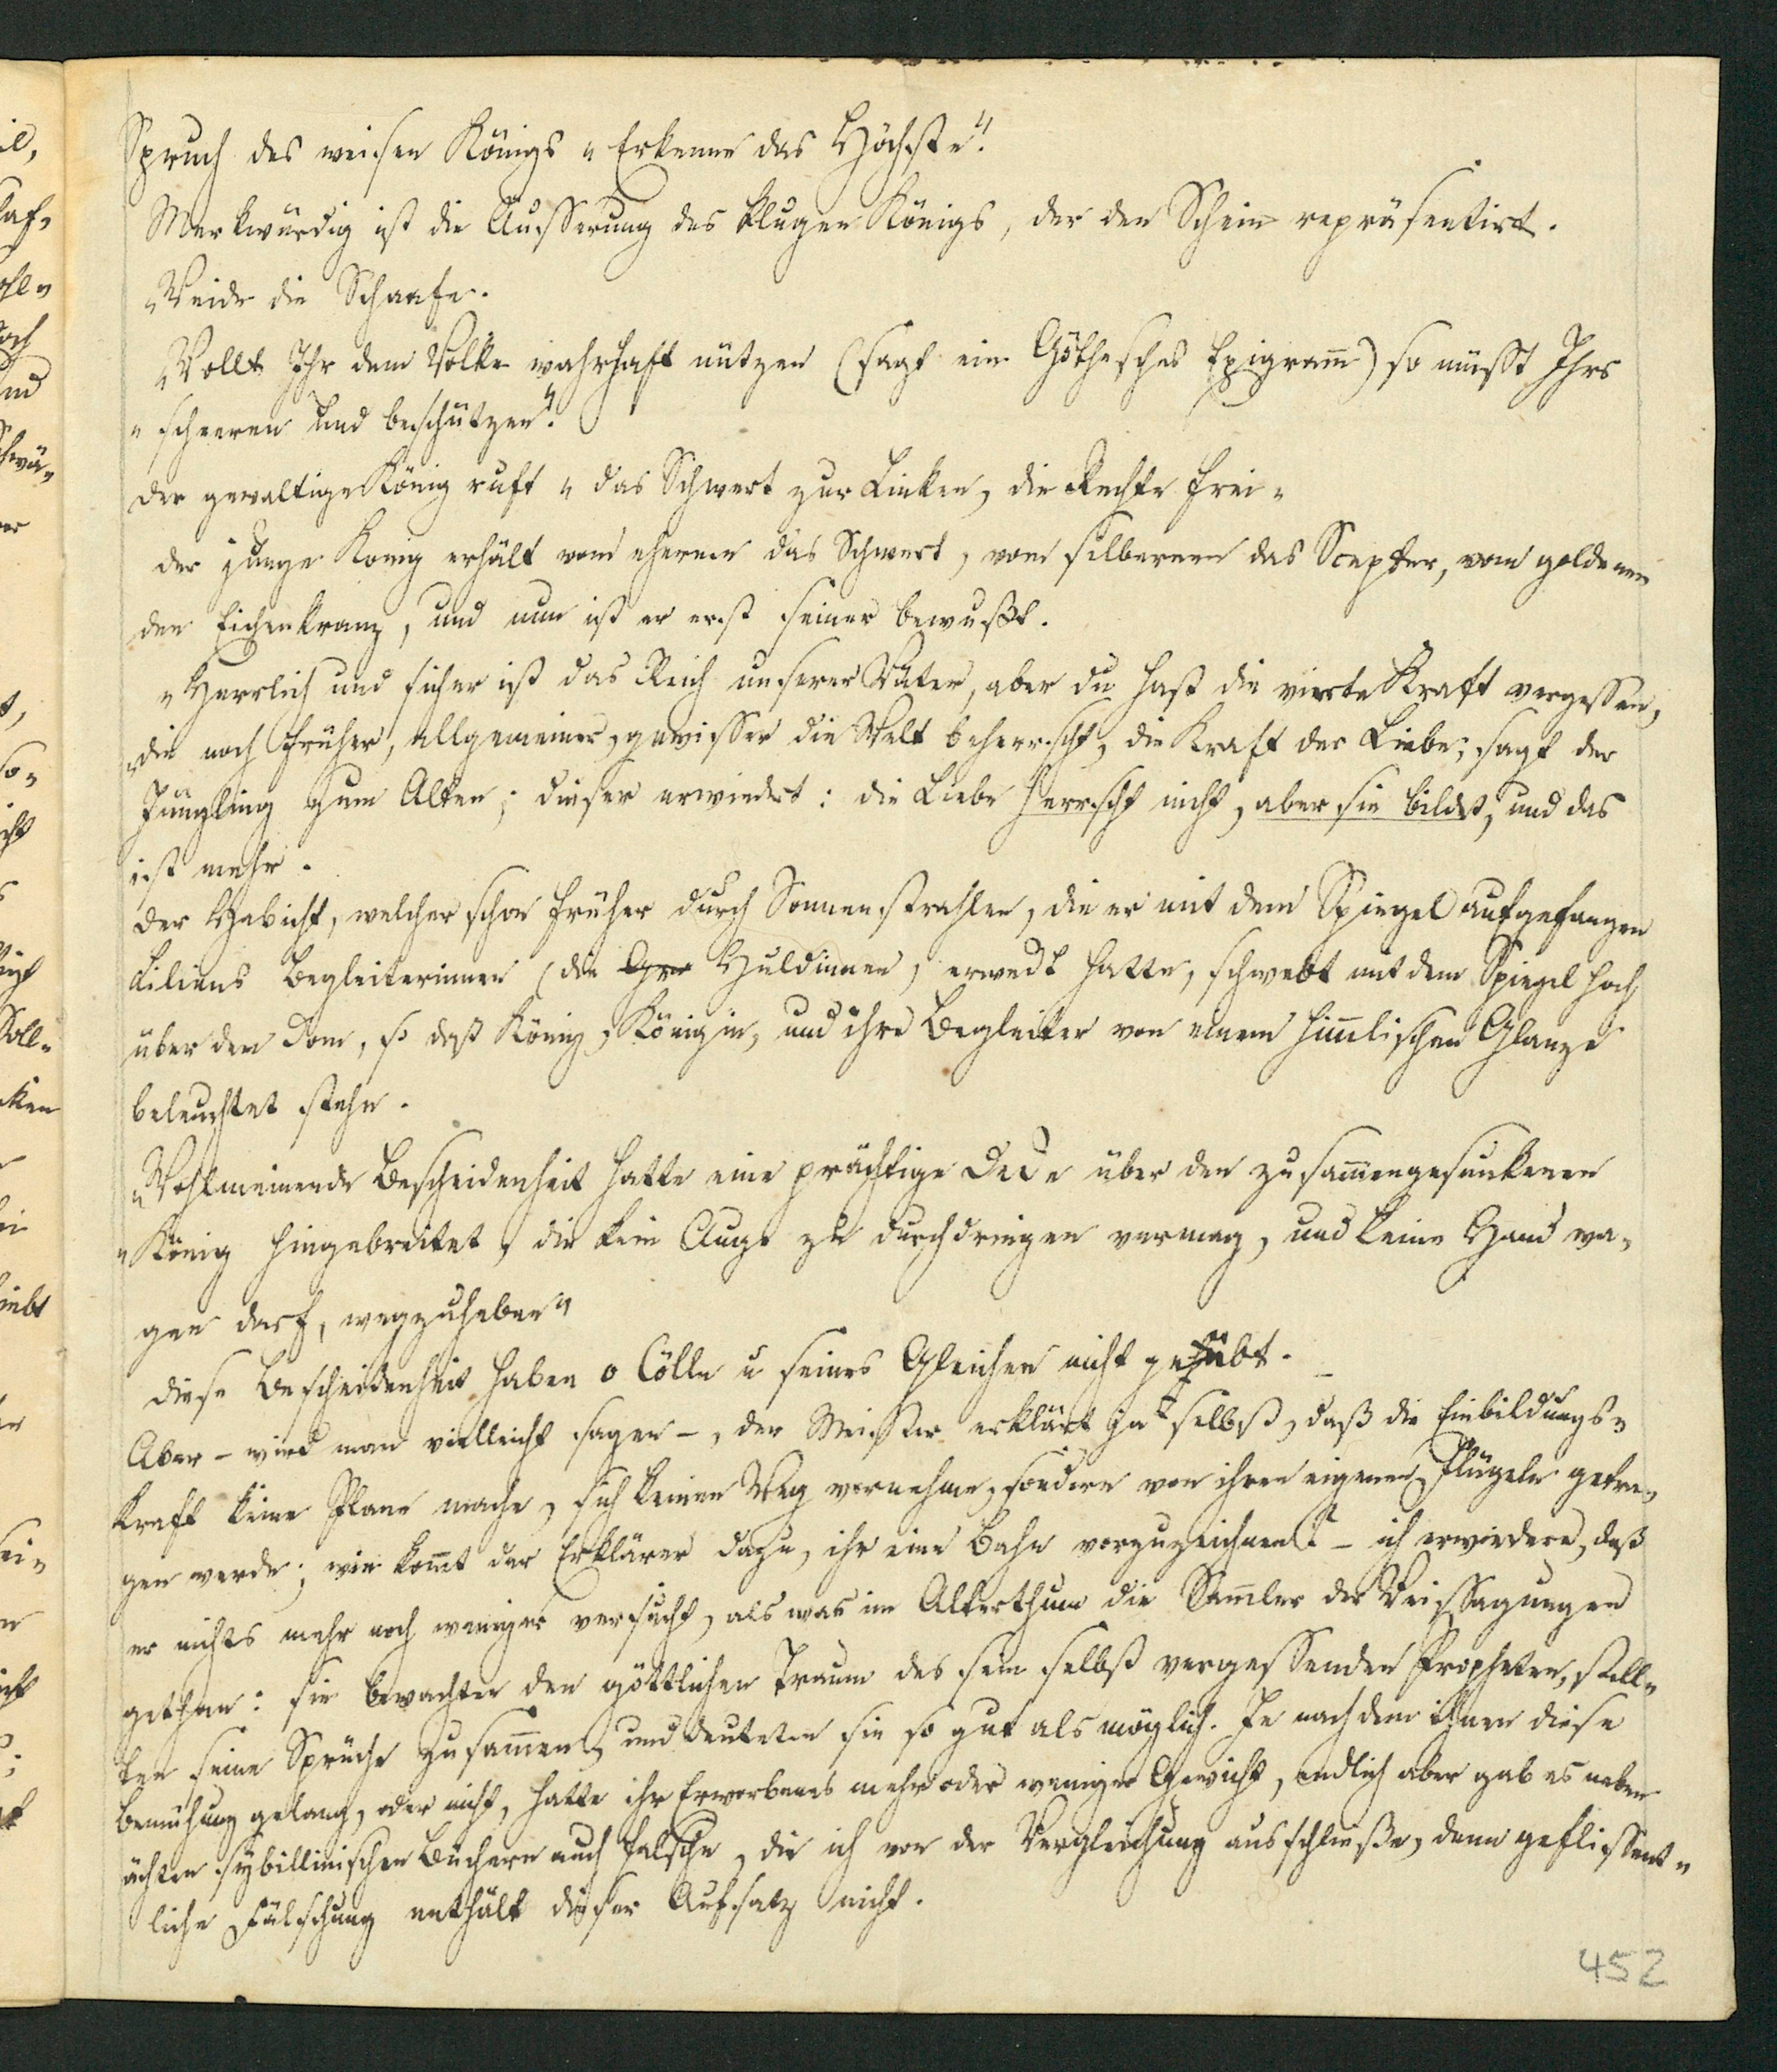 Spruch des weisen Königs „Erkenne das Höchste“.
Merkwürdig ist die Äusserung des klugen Königs, der den Schein repräsentirt.
„Weide die Schaafe.
„Wollt Ihr dem Volke wahrhaft nützen (sagt ein Göthesches Epigram̄) so müsst Ihrs
„scheeren und beschützen“.
Der gewaltige König ruft „das Schwert zur Linken, die Rechte frei„
der junge König erhält vom ehernen das Schwert, vom silbernen das Scepter, vom goldenen
den Eichenkranz, und nun ist er erst seiner bewußt.
„Herrlich und sicher ist das Reich unserer Väter, aber du hast die vierte Kraft vergessen,
„die noch früher, allgemeiner, gewisser die Welt beherrscht, die Kraft der Liebe; sagt der
Jüngling zum Alten; dieser erwiedert: die Liebe herrscht nicht, aber sie bildet, und das
ist mehr.
Der Habicht, welcher schon früher durch Sonnenstrahlen, die er mit dem Spiegel aufgefangen
Liliens Begleiterinnen (die Huldinnen, erweckt hatte, schwebt mit dem Spiegel hoch
über dem Dom, so daß König, Königin, und ihre Begleiter von einem him̄lischen Glanze
beleuchtet stehn.
„Wohlmeinende Bescheidenheit hatte eine prächtige Decke über den zusam̄engesunkenen
„König hingebreitet, die kein Auge zu durchdringen vermag, und keine Hand wa„
gen darf, wegzuheben“
Diese Bescheidenheit haben v Cölln u seines Gleichen nicht geübt.
Aber – wird man vielleicht sagen –, der Meister erklärt ja selbst, daß die Einbildungs„
kraft keine Plane mache, sich keinen Weg vornehme, sondern von ihren eigenen Flügeln getra„
gen werde; wie kom̄t der Erklärer dazu, ihr eine Bahn vorzuzeichnen? – ich erwiedere, daß
er nichts mehr noch weniger versucht, als was im Alterthum die Sam̄ler der Weissagungen
gethan: sie bewachten den göttlichen Traum des sein selbst vergessenden Propheten, stell„
ten seine Sprüche zusam̄en, und deuteten sie so gut als möglich. Je nach dem ihnen diese
Bemühung gelang, oder nicht, hatte ihr Erworbenes mehr oder weniger Gewicht, endlich aber gab es neben
ächten sybillinischen Büchern auch falsche, die ich von der Vergleichung ausschließe, denn geflissent„
liche Fälschung enthält dieser Aufsatz nicht.
452